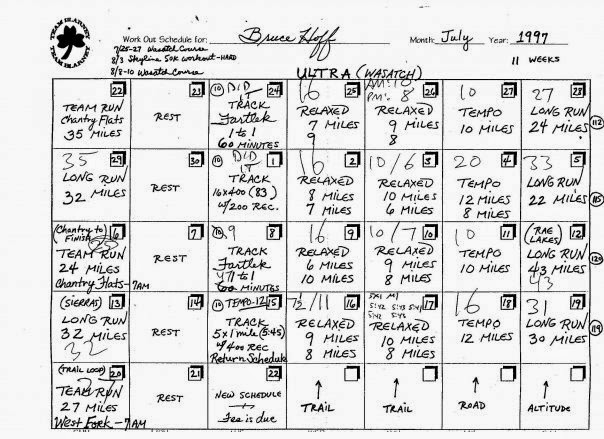 TEAM BLARNEY
TEAM BLARNEY
Work Out Schedule for: Bruce Hoff Month: July Year: 1997
7/25-27 Wasatch Course
8/3 Skyline 50K workout-HARD
8/8-10 Wasatch Course
11 WEEKS
ULTRA (WASATCH)
22
TEAM RUN
Chantry Flats
35 MILES
23
REST
10 DID IT 24
TRACK
Fartlek
1 to 1
60 MINUTES
16 25
RELAXED
7 MILES
9
AM: 10 26
PM: 8
RELAXED
9 MILES
8
10 27
TEMPO
10 MILES
27 28
LONG RUN
24 MILES
112
35 29
LONG RUN
32 MILES
30
REST
10 DID IT 1
TRACK
16x400 (83)
w/200 REC.
16 2
RELAXED
8 MILES
7 MILES
10/6 3
RELAXED
10 MILES
6 MILES
20 4
TEMPO
12 MILES
8 MILES
33 5
LONG RUN
22 MILES
115
(Chantry to Finish) 6
TEAM RUN
24 MILES
Chantry Flats-7AM
7
REST
10 9 8
TRACK
Fartlek
1 to 1
60 MINUTES
16 9
RELAXED
6 MILES
10 MILES
10/7 10
RELAXED
9 MILES
8 MILES
10 11
TEMPO
10 MILES
(RAE LAKES) 12
LONG RUN
43 MILES
43
120
(SIERRAS) 13
LONG RUN
32 MILES
32
14
REST
10 TEMPO-12 15
TRACK
5x1 mile (5:45)
w/400 REC
Return Schedule
7½/11 16
RELAXED
9 MILES
8 MILES
5x1 MI 17
5:42 5:43 5:41
5:42 5:43
RELAXED
10 MILES
8 MILES
16 18
TEMPO
12 MILES
31 19
LONG RUN
30 MILES
119
(TRAIL LOOP) 20
TEAM RUN
27 MILES
West Fork-7AM
21
REST
22
NEW SCHEDULE
+
Fee is due
TRAIL
TRAIL
ROAD
ALTITUDE